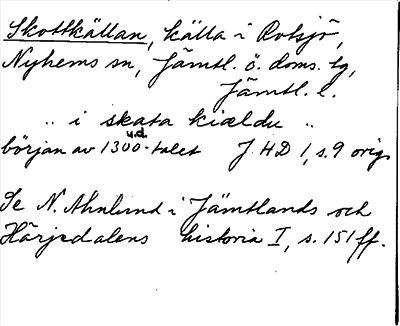 Skottkällan, källa i Rotsjö,
Nyhems sn, Jämtl. ö. doms. tg,
Jämtl. l.
.. i skata kieldu ..
u.d.
början av 1300-talet J. HD 1, s. 9 orig.
Se N. Ahnlund i Jämtlands och
Härjedalens historia I, s. 151 ff.